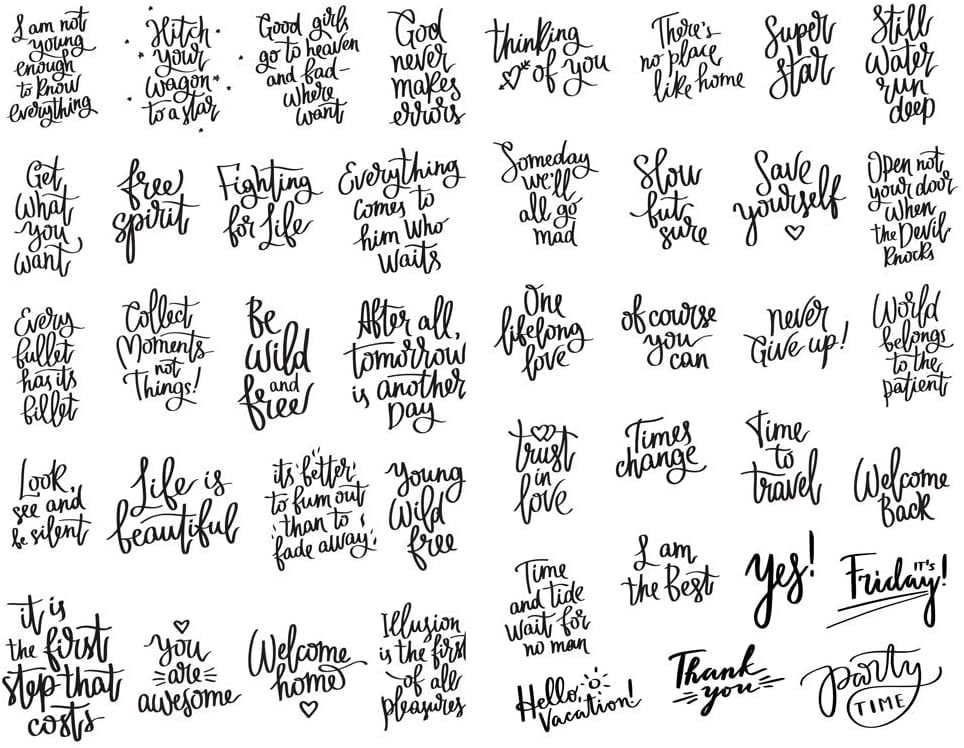 I am not
young
enough
to know
everything
Hitch
your
wagon
to a star
Good girls
go to heaven
and bad-
where
want
God
never
makes
errors
thinking
of you
There's
no place
like home
Super
star
Still
water
run
deep
Get
what
you
want
free
spirit
Fighting
for Life
Everything
comes to
him who
waits
Someday
we'll
all go
mad
Slow
but
sure
Save
yourself
Open not
your door
when
the Devil
knocks
Every
bullet
has its
billet
Collect
Moments
not
Things!
Be
wild
and
free
After all,
tomorrow
is another
Day
One
lifelong
love
of course
you
can
never
Give up!
World
belongs
to the
patient
Look,
see and
be silent
Life is
beautiful
it's better
to fum out
than to
fade away
Young
Wild
free
trust
in
love
Times
change
Time
to
travel
Welcome
Back
it is
the first
step that
costs
you
are
awesome
Welcome
home
Illusion
is the first
of all
pleasures
Time
and tide
wait for
no man
I am
the Best
yes!
IT'S
Friday!
Hello,
Vacation!
Thank
you
party
TIME